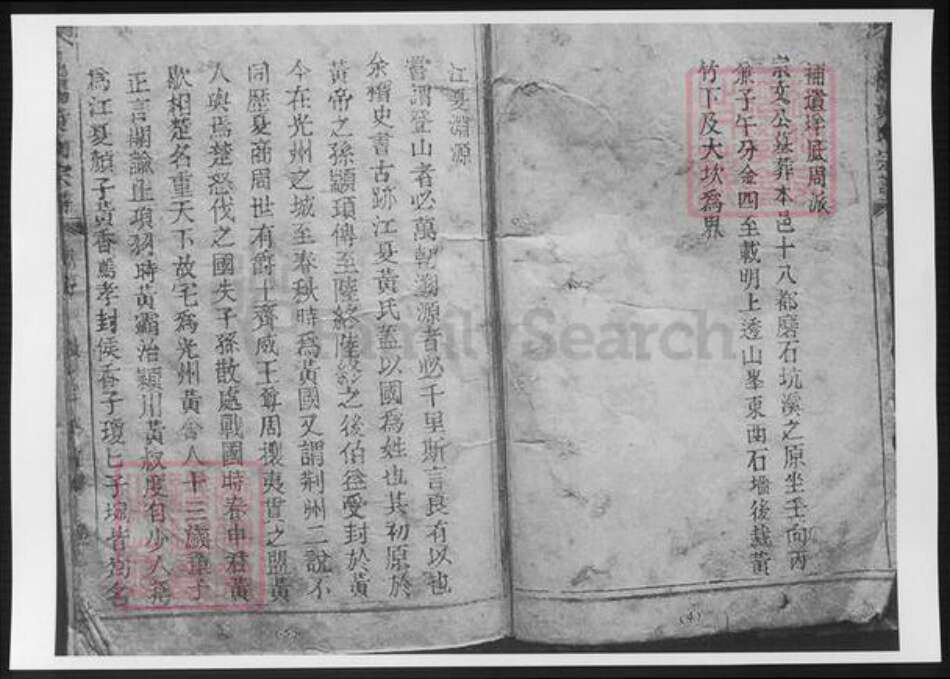 補遺坪底周派
宗文公墓葬本邑十八都磨石坑溪之原坐壬向丙
兼子午分金四至載明上透山峯東曲石墻後裁黃
竹下及大坎為界
(4)
江夏淵源
嘗謂登山者必萬軔溯源者必千里斯言良有以也
余稽史書古跡江夏黃氏蓋以國為姓也其初原於
黃帝之孫顓頊傳至陸終陸終之後伯益受封於黃
今在光州之城至春秋時為黃國又謂荊州二說不
同歷夏商周世有爵土齊威王尊周攘夷貫之盟黃
人與焉楚怒伐之國失子孫散處戰國時春申君黃
歇相楚名重天下故宅為光州黃舍人十三演童子
正言闡諭止項羽時黃霸治潁川黃叔度有少人稱
為江夏顏子黃香薦孝封侯香子瓊七子皆
(5)
FamilySearch